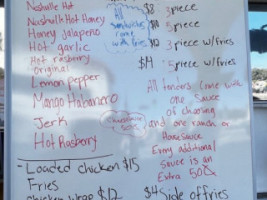 Nashville Hot
Nashville Hot Honey
Honey Jalapeno
Hot garlic
Hot rasberry
original
Lemon pepper
Mango Habanero
Jerk
Hot Rasberry
All
sandwiches
come
with fries
$8 3piece
5 piece
3 piece w/fries
$14 5piece w/fries
All tenders come with
one Sauce
of choosing
and one ranch or
House Sauce
Every additional
Sauce is an
Extra 50¢
-Loaded chicken $15
Fries
chicken wrap $12
$4 Side of fries